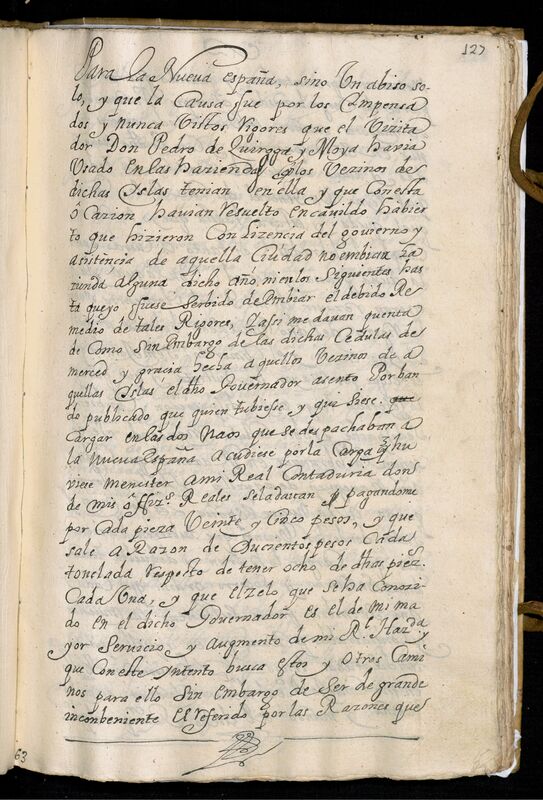 127
Para la Nueva españa, sino Un abiso so-
lo, y que la Causa fue por los Ympensa
dos y nunca Vistos rigores que el Vizita
dor Don Pedro de Quiroga y Moya havia
Usado en las hazienda los Vezinos des
dichas Yslas tenian en ella y que Con esta
ôCazion havian resuelto en cavildo habier
to que hizieron Con lizencia del govierno y
asistencia de aquella Ciudad no embiar ha
zienda alguna dicho año, ni en los siguientes has
ta que yo fuese serbido de embiar el debido Re
medio de tales Rigores, y assi me davan quenta
de Como sin embargo de las dichas Cedulas de
merced y gracia hecha a quellos Vezinos de a
quellas Yslas el dho Governador asento Por ban
do publicado que quien tubiesse y qui siese. que
Cargar en las dos Naos que se des pachaban a
la nueva España acudiese por la Carga q hu
viese menester ami Real Contaduria don
de mis offizs. Reales se la davan y pagandome
por Cada pieza Veinte y Cinco pesos, y que
sale a Razon de Ducientos pesos Cada
tonelada respecto de tener ocho de dhas piezs.
Cada Una, y que el zelo que se ha Conozi
do en el dicho Governador es el de mi ma
yor Servicio y augmento de mi Rl. Hazda y
que Con este yntento busca estos y otros Cami
nos para ello sin embargo de ser de grande
inconbeniente el referido por las Razones que
63